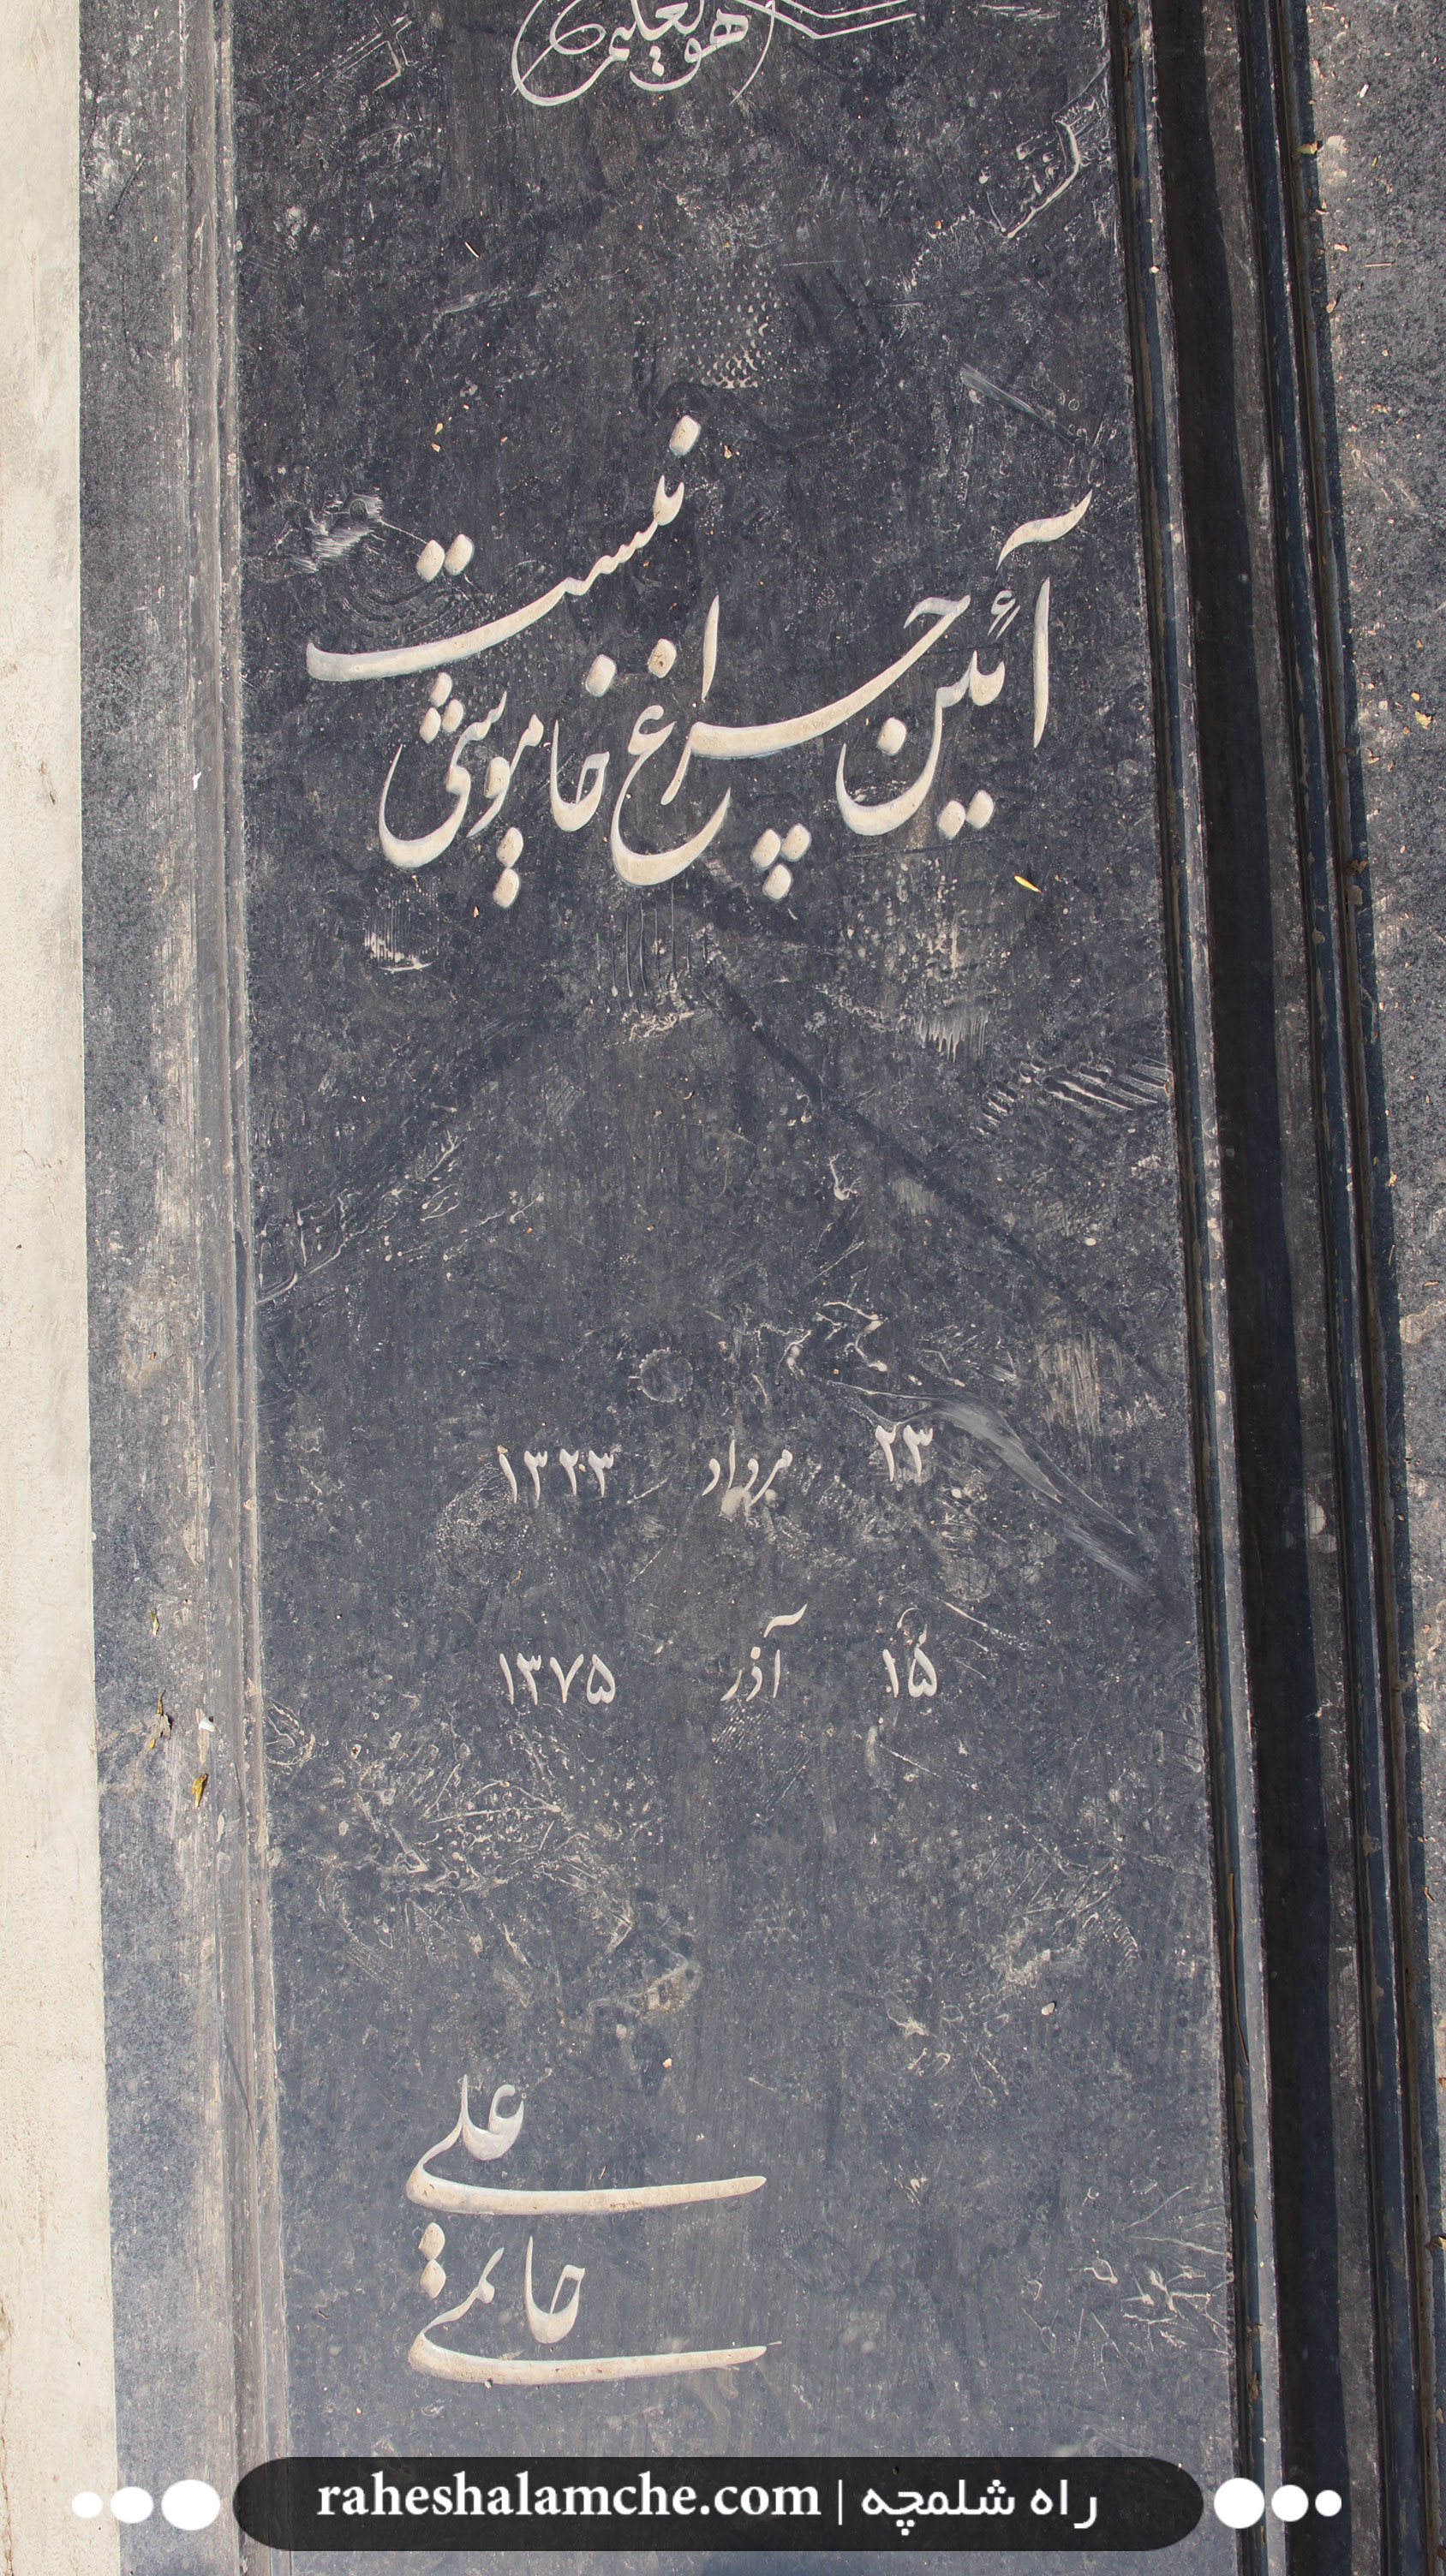 هوالعلیم
آئین چراغ خاموشی نیست
۲۳ مرداد ۱۳۲۳
۱۵ آذر ۱۳۷۵
علی
حاتمی
راه شلمچه | raheshalamche.com